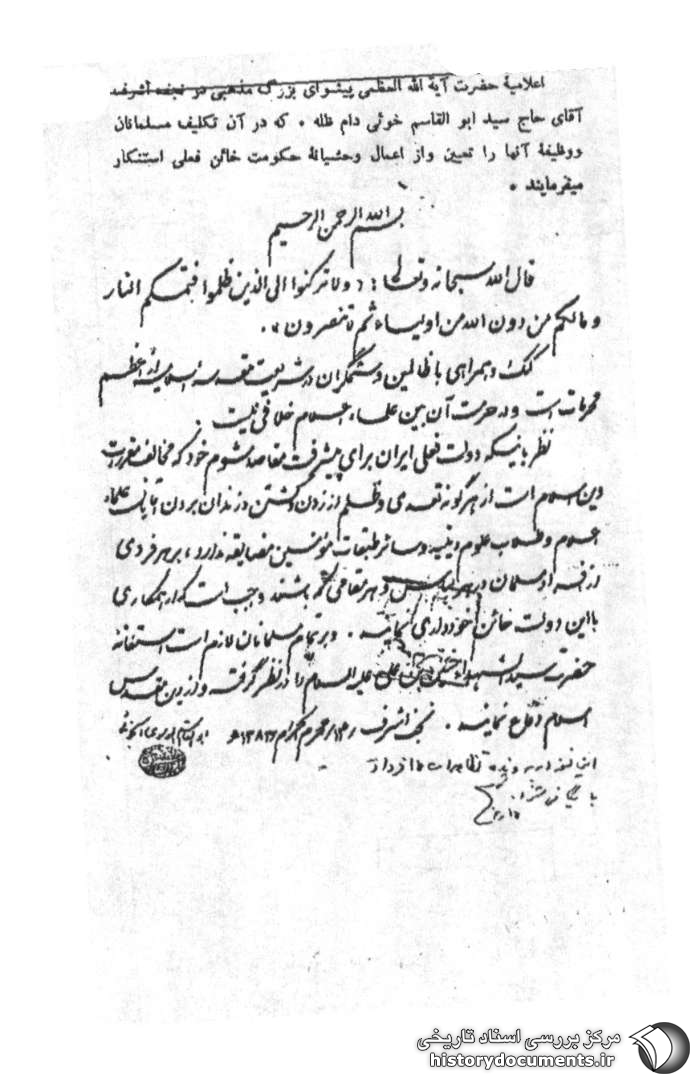 اعلامیهٔ حضرت آیة الله العظمی پیشوای بزرگ مذهبی در نجف اشرف
آقای حاج سید ابو القاسم خوئی دام ظله ٠ که در آن تکلیف مسلمانان
ووظیفهٔ آنها را تعیین واز اعمال وحشیانهٔ حکومت خائن فعلی استنکار
میفرمایند ٠
بسم الله الرحمن الرحیم
قال الله سبحانه وتعالی : « ولا ترکنوا الی الذین ظلموا فتمسکم النار
ومالکم من دون الله من اولیاء ثم لا تنصرون » .
کمک وهمراهی با ظالمین وستمگران در شریعت مقدسه اسلامیه از اعظم
محرمات است ودر حرمت آن بین علماء اعلام خلافی نیست
نظر باینکه دولت فعلی ایران برای پیشرفت مقاصد شوم خود که مخالف مقررات
دین اسلام است از هر گونه تعدی وظلم از زدن وکشتن وزندان بردن علماء
اعلام وطلاب علوم دینیه وسائر طبقات مؤمنین مضایقه ندارد ، بر هر فردی
از افراد مسلمان در هر لباس وهر مقامی که باشند واجب است که از همکاری
با این دولت خائن خودداری نمایند . وبر تمام مسلمانان لازم است استغاثهٔ
حضرت سید الشهداء حسین بن علی علیه السلام را در نظر گرفته واز دین مقدس
اسلام دفاع نمایند . نجف اشرف /١٣/ محرم الحرام /١٣٨٣ ابو القاسم الموسوی الخوئی
این نسخه در پرونده تظاهرات ١٥ خرداد
بایگانی شود
مرکز بررسی اسناد تاریخی
historydocuments.ir